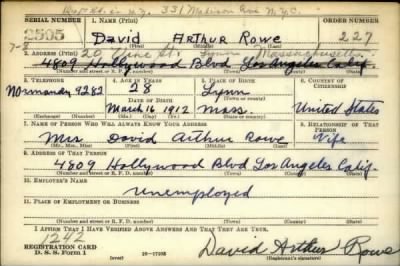 331 Madison Ave N.Y.C.
SERIAL NUMBER 1. NAME (Print) ORDER NUMBER
2505 David Arthur Rowe 227
(First) (Middle) (Last)
7-8
2. ADDRESS (Print) 20 St. Lynn Massachusetts
4809 Hollywood Blvd Los Angeles Calif.
(Number and street or R. F. D. number) (Town) (County) (State)
3. TELEPHONE 4. AGE IN YEARS 5. PLACE OF BIRTH 6. COUNTRY OF CITIZENSHIP
28 Lynn
Normandy 9282 DATE OF BIRTH (Town or county)
March 16 1912 Mass. United States
(Exchange) (No.) (Mo.) (Day) (Yr.) (State or country)
7. NAME OF PERSON WHO WILL ALWAYS KNOW YOUR ADDRESS 8. RELATIONSHIP OF THAT PERSON
Mrs. David Arthur Rowe Wife
(Mr., Mrs., Miss) (First) (Middle) (Last)
9. ADDRESS OF THAT PERSON
4809 Hollywood Blvd Los Angeles Calif.
(Number and street or R. F. D. number) (Town) (County) (State)
10. EMPLOYER'S NAME
Unemployed
11. PLACE OF EMPLOYMENT OR BUSINESS
(Number and street or R. F. D. number) (Town) (County) (State)
I AFFIRM THAT I HAVE VERIFIED ABOVE ANSWERS AND THAT THEY ARE TRUE.
1242
REGISTRATION CARD
D. S. S. Form 1 (over) 16-17105 David Arthur Rowe
(Registrant's signature)